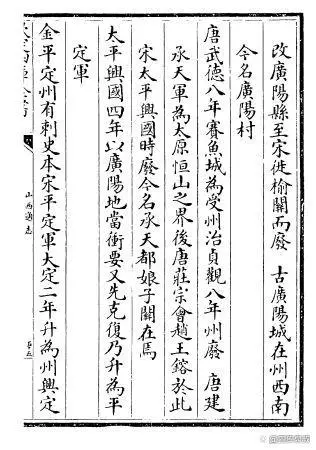 改廣陽縣至宋徙榆關而廢 古廣陽城在州西南
今名廣陽村
唐武德八年賽魚城為受州治貞觀八年州廢 唐建
承天軍為太原恒山之界後唐莊宗會趙王鎔於此
宋太平興國時廢今名承天都娘子關在焉
太平興國四年以廣陽地當衝要又先克復乃升為平
定軍
金平定州有刺史本宋平定軍大定二年升為州興定
山西通志